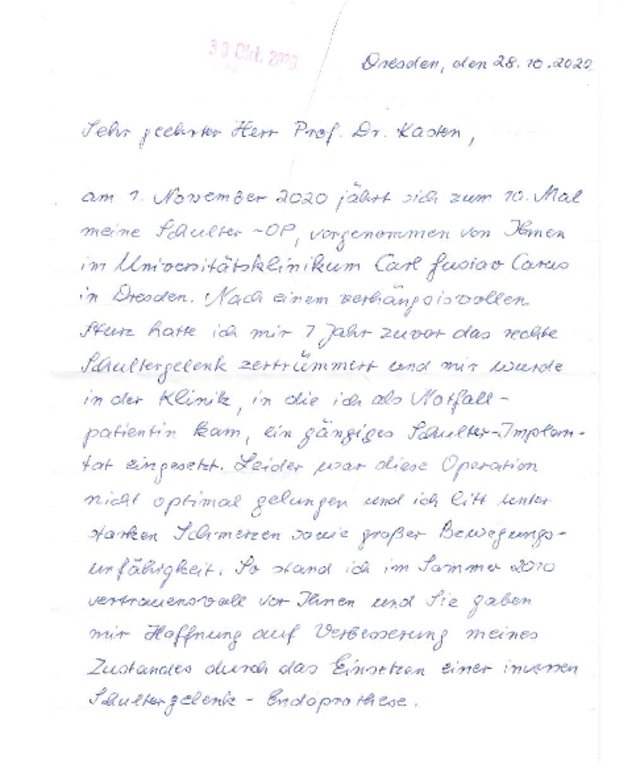 30 Okt. 2020
Dresden, den 28.10.2020
Sehr geehrter Herr Prof. Dr. Kasten,
am 1. November 2020 jährt sich zum 10. Mal
meine Schulter-OP, vorgenommen von Ihnen
im Universitätsklinikum Carl Gustav Carus
in Dresden. Nach einem verhängnisvollen
Sturz hatte ich mir 1 Jahr zuvor das rechte
Schultergelenk zertrümmert und mir wurde
in der Klinik, in die ich als Notfall-
patientin kam, ein gängiges Schulter-Implan-
tat eingesetzt. Leider war diese Operation
nicht optimal gelungen und ich litt unter
starken Schmerzen sowie großer Bewegungs-
unfähigkeit. So stand ich im Sommer 2010
vertrauensvoll vor Ihnen und Sie gaben
mir Hoffnung auf Verbesserung meines
Zustandes durch das Einsetzen einer inversen
Schultergelenk-Endoprothese.